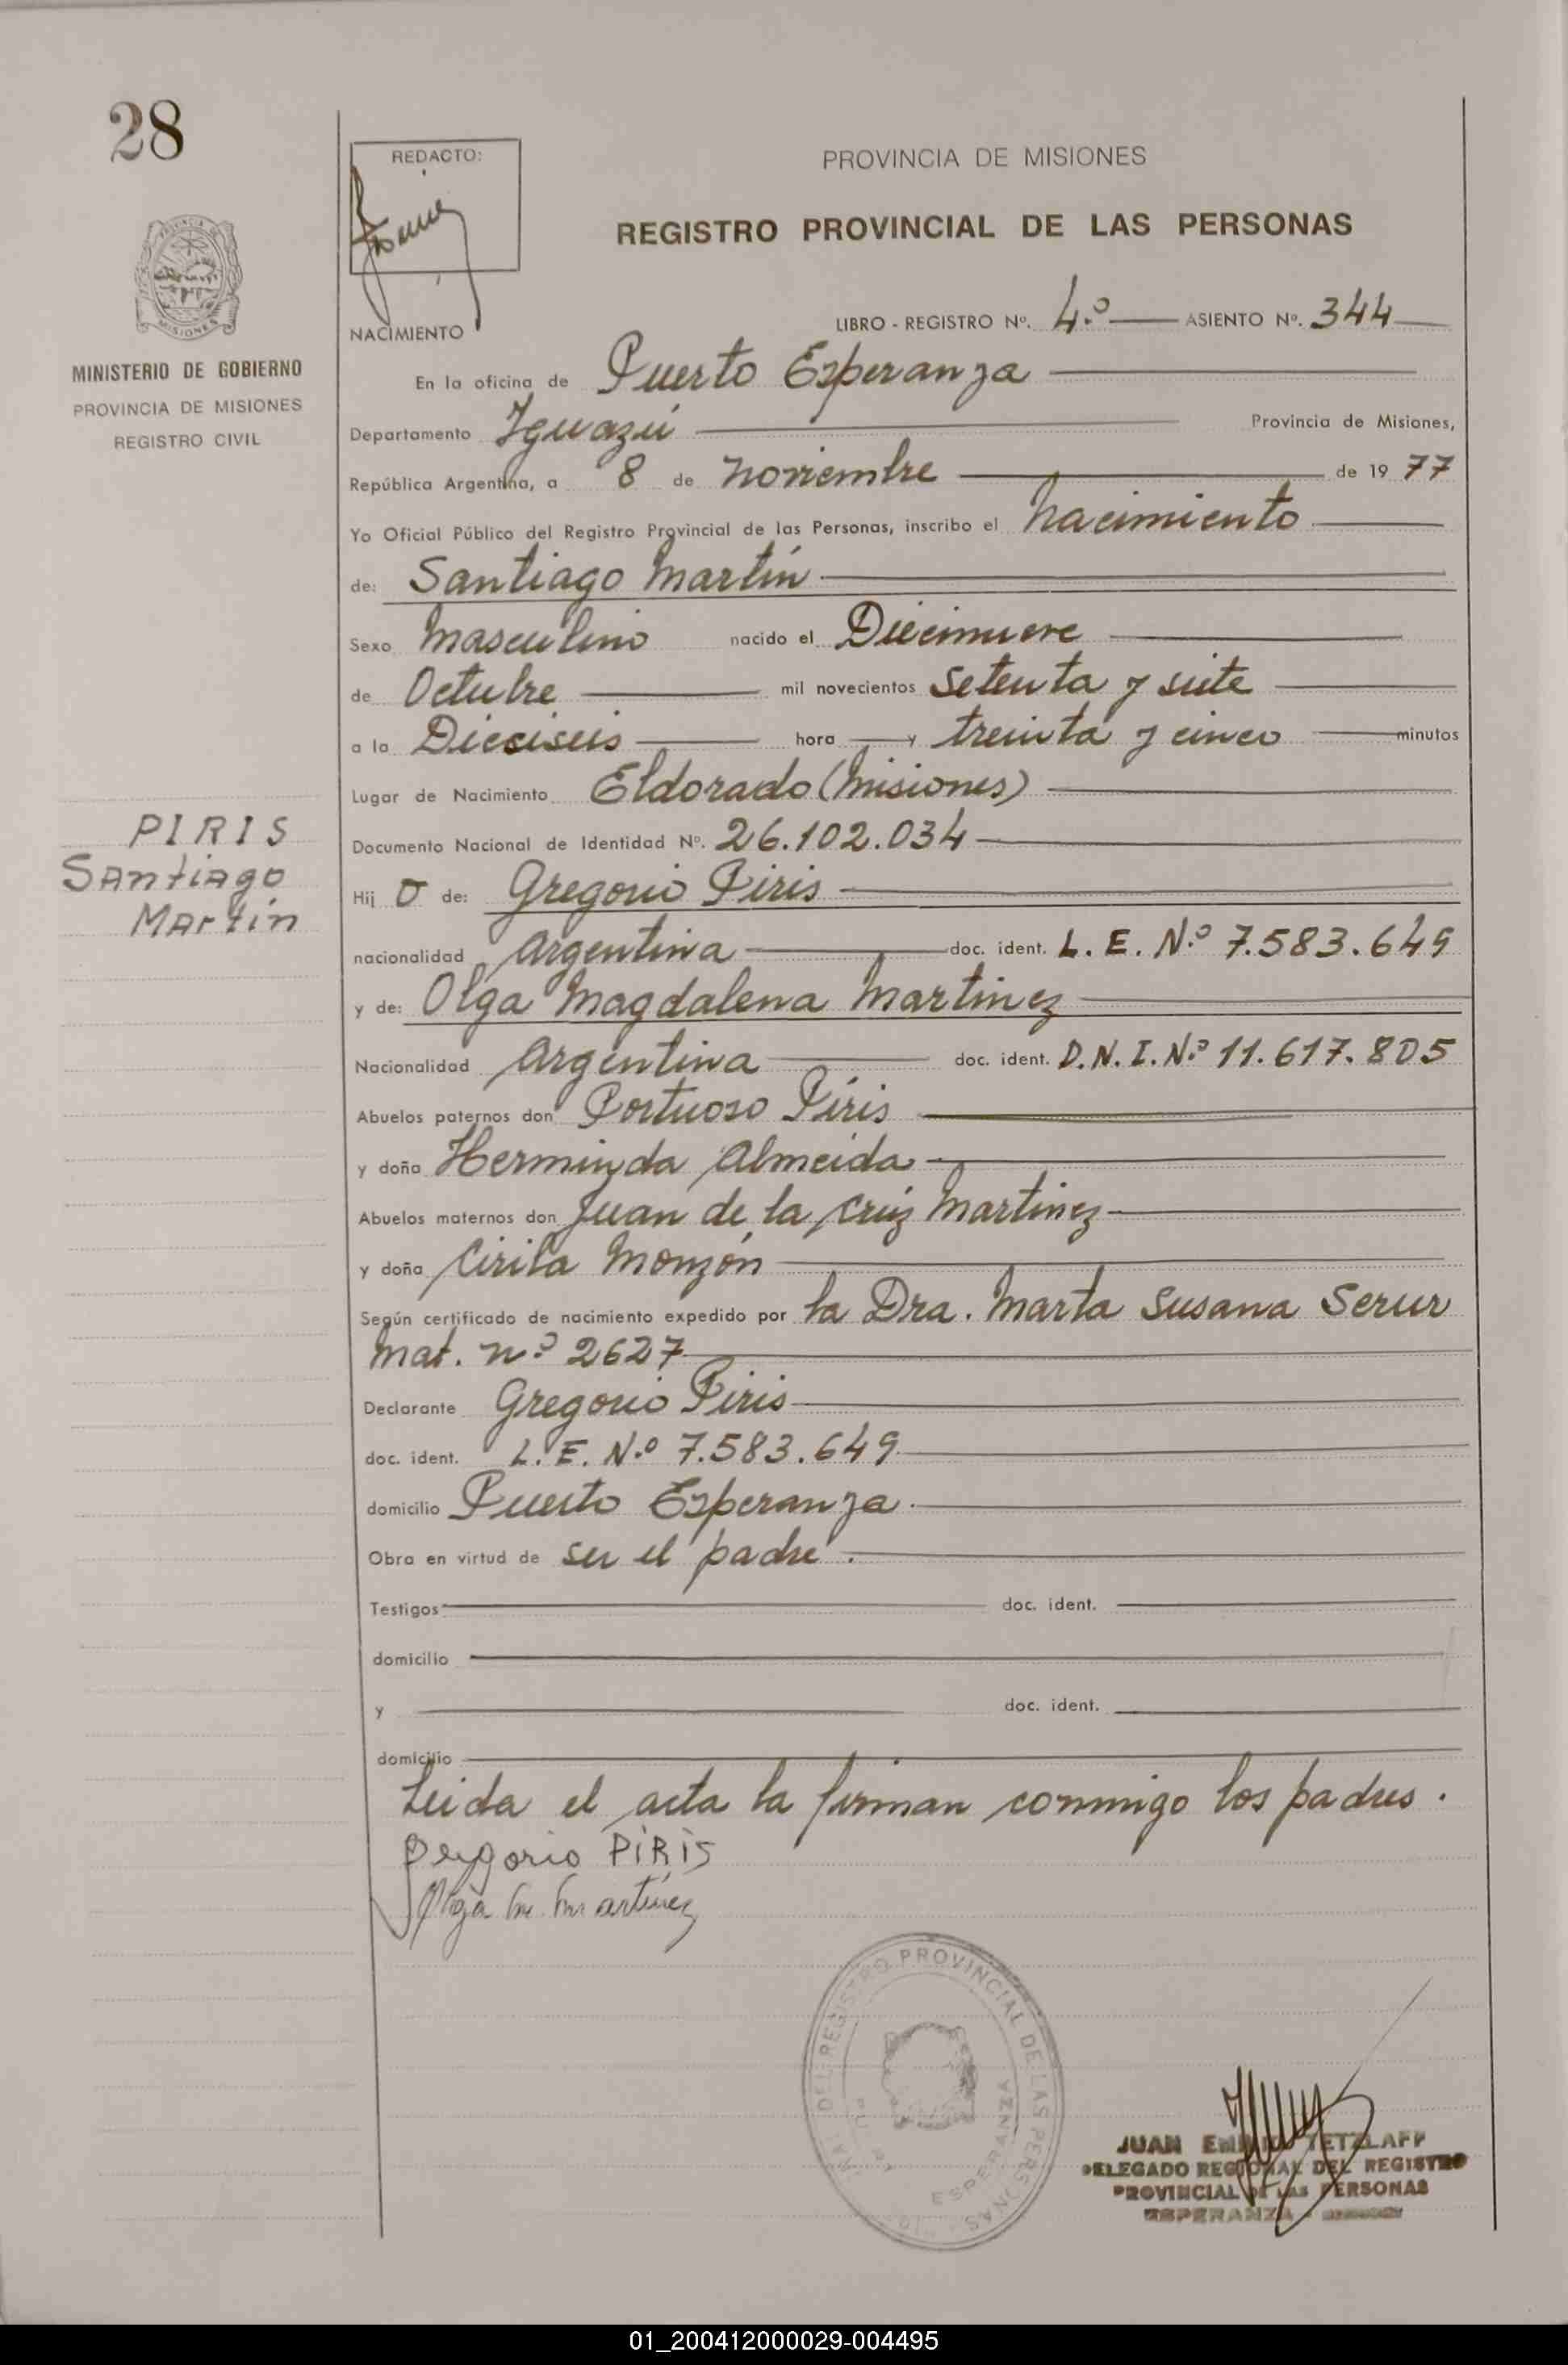 28
REDACTO:
PROVINCIA DE MISIONES
REGISTRO PROVINCIAL DE LAS PERSONAS
MISIONES
MINISTERIO DE GOBIERNO
PROVINCIA DE MISIONES
REGISTRO CIVIL
NACIMIENTO
LIBRO - REGISTRO Nº. 4º ASIENTO Nº. 344
En la oficina de Puerto Esperanza
Departamento Iguazú Provincia de Misiones,
República Argentina, a 8 de noviembre de 1977
Yo Oficial Público del Registro Provincial de las Personas, inscribo el nacimiento
de: Santiago Martín
Sexo Masculino nacido el Diecinueve
de Octubre mil novecientos setenta y siete
a la Dieciseis hora y treinta y cinco minutos
Lugar de Nacimiento Eldorado (Misiones)
Documento Nacional de Identidad Nº. 26.102.034
PIRIS
Santiago
Martín
Hij o de: Gregorio Piris
nacionalidad Argentina doc. ident. L. E. N.º 7.583.649
y de: Olga Magdalena Martinez
Nacionalidad Argentina doc. ident. D.N.I.Nº 11.617.805
Abuelos paternos don Portuoso Piris
y doña Herminda Almeida
Abuelos maternos don Juan de la Cruz Martinez
y doña Cirila Monzón
Según certificado de nacimiento expedido por la Dra. Marta Susana Serur
Mat. nº 2627
Declarante Gregorio Piris
doc. ident. L. E. N.º 7.583.649
domicilio Puerto Esperanza.
Obra en virtud de ser el padre.
Testigos doc. ident.
domicilio
y doc. ident.
domicilio
Leida el acta la firman conmigo los padres.
Gregorio PIRIS
Olga M. Martínez
DEL REGISTRO PROVINCIAL DE LAS PERSONAS
ESPERANZA
JUAN TETZLAFF
DELEGADO REGIONAL DEL REGISTRO
PROVINCIAL DE LAS PERSONAS
ESPERANZA
01_200412000029-004495